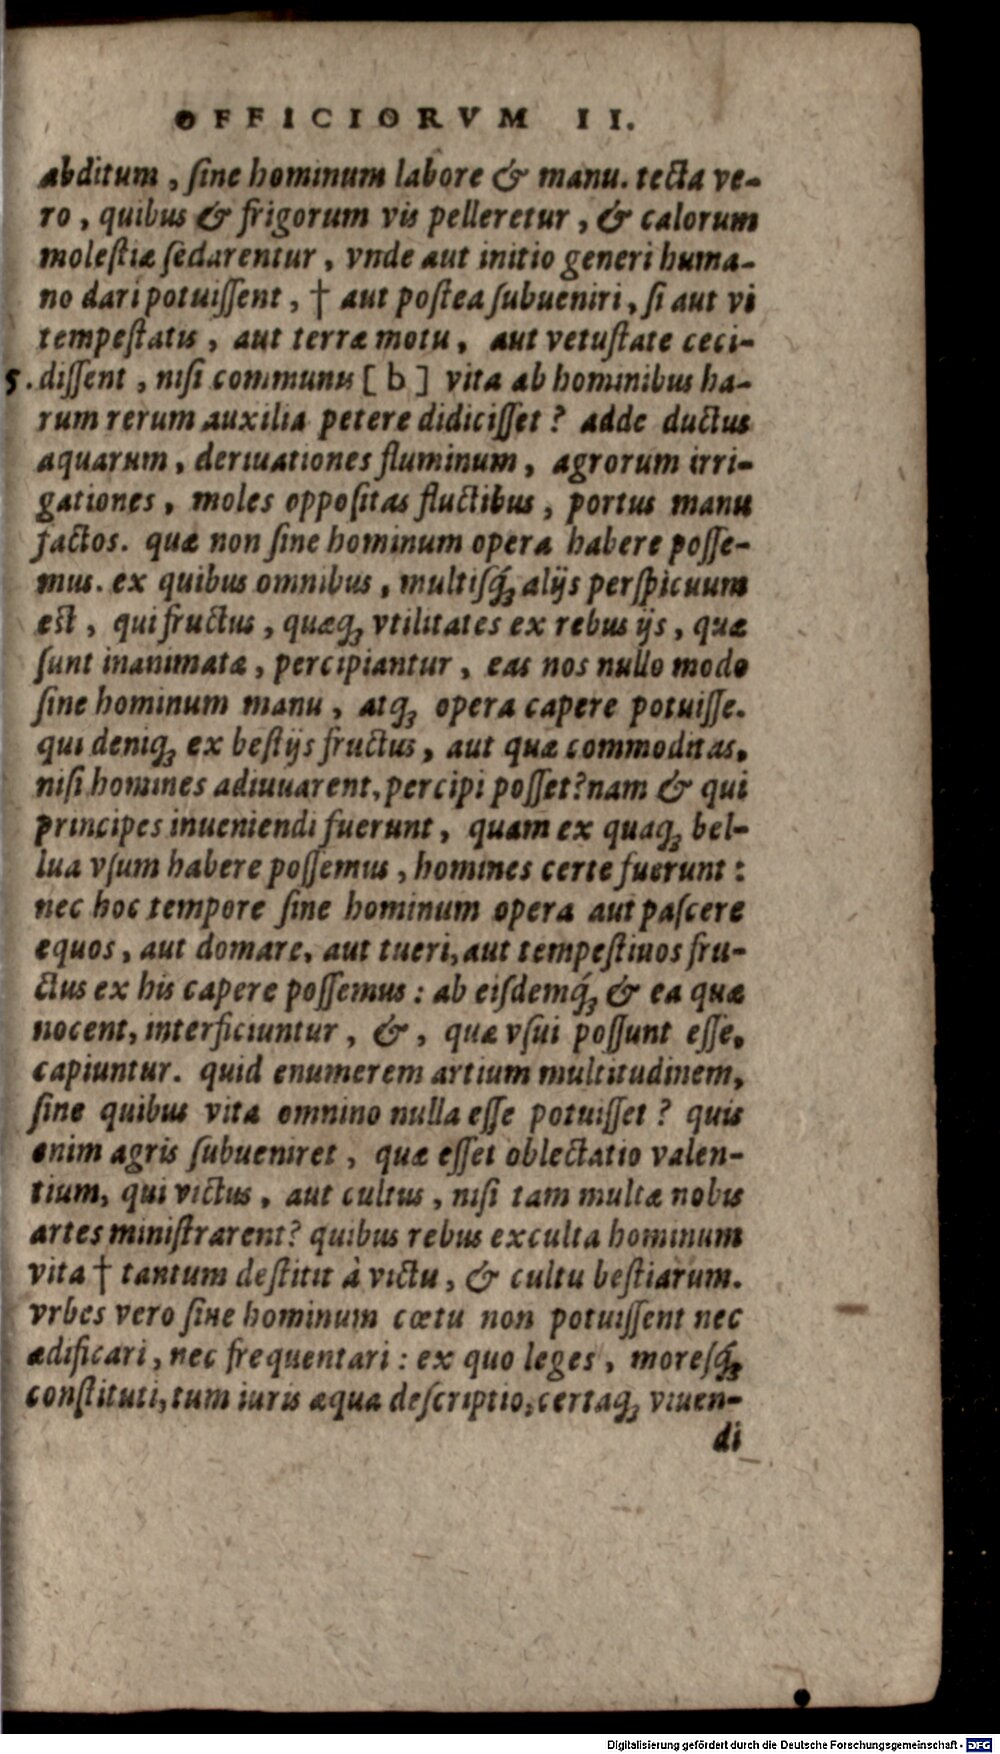 OFFICIORVM II.
abditum, ſine hominum labore & manu. tecta ve-
ro, quibus & frigorum vis pelleretur, & calorum
moleſtiæ ſedarentur, vnde aut initio generi huma-
no dari potuiſſent, † aut poſtea ſubueniri, ſi aut vi
tempeſtatis, aut terræ motu, aut vetuſtate ceci-
5. diſſent, niſi communis [b] vita ab hominibus ha-
rum rerum auxilia petere didiciſſet? adde ductus
aquarum, deriuationes fluminum, agrorum irri-
gationes, moles oppoſitas fluctibus, portus manu
factos. quæ non ſine hominum opera habere poſſe-
mus. ex quibus omnibus, multiſq́ꝫ alijs perſpicuum
est, qui fructus, quæqꝫ vtilitates ex rebus ijs, quæ
ſunt inanimatæ, percipiantur, eas nos nullo modo
ſine hominum manu, atqꝫ opera capere potuiſſe.
qui deniqꝫ ex beſtijs fructus, aut quæ commoditas,
niſi homines adiuuarent, percipi poſſet? nam & qui
principes inueniendi fuerunt, quam ex quaqꝫ bel-
lua vſum habere poſſemus, homines certe fuerunt:
nec hoc tempore ſine hominum opera aut paſcere
equos, aut domare, aut tueri, aut tempeſtiuos fru-
ctus ex his capere poſſemus: ab eiſdemq́ꝫ & ea quæ
nocent, interficiuntur, &, quæ vſui poſſunt eſſe,
capiuntur. quid enumerem artium multitudinem,
ſine quibus vita omnino nulla eſſe potuiſſet? quis
enim ægris ſubueniret, quæ eſſet oblectatio valen-
tium, qui victus, aut cultus, niſi tam multæ nobis
artes miniſtrarent? quibus rebus exculta hominum
vita † tantum deſtitit à victu, & cultu beſtiarum.
vrbes vero ſine hominum cœtu non potuiſſent nec
ædificari, nec frequentari: ex quo leges, moreſq́ꝫ
conſtituti, tum iuris æqua deſcriptio, certaqꝫ viuen-
di
Digitalisierung gefördert durch die Deutsche Forschungsgemeinschaft - DFG